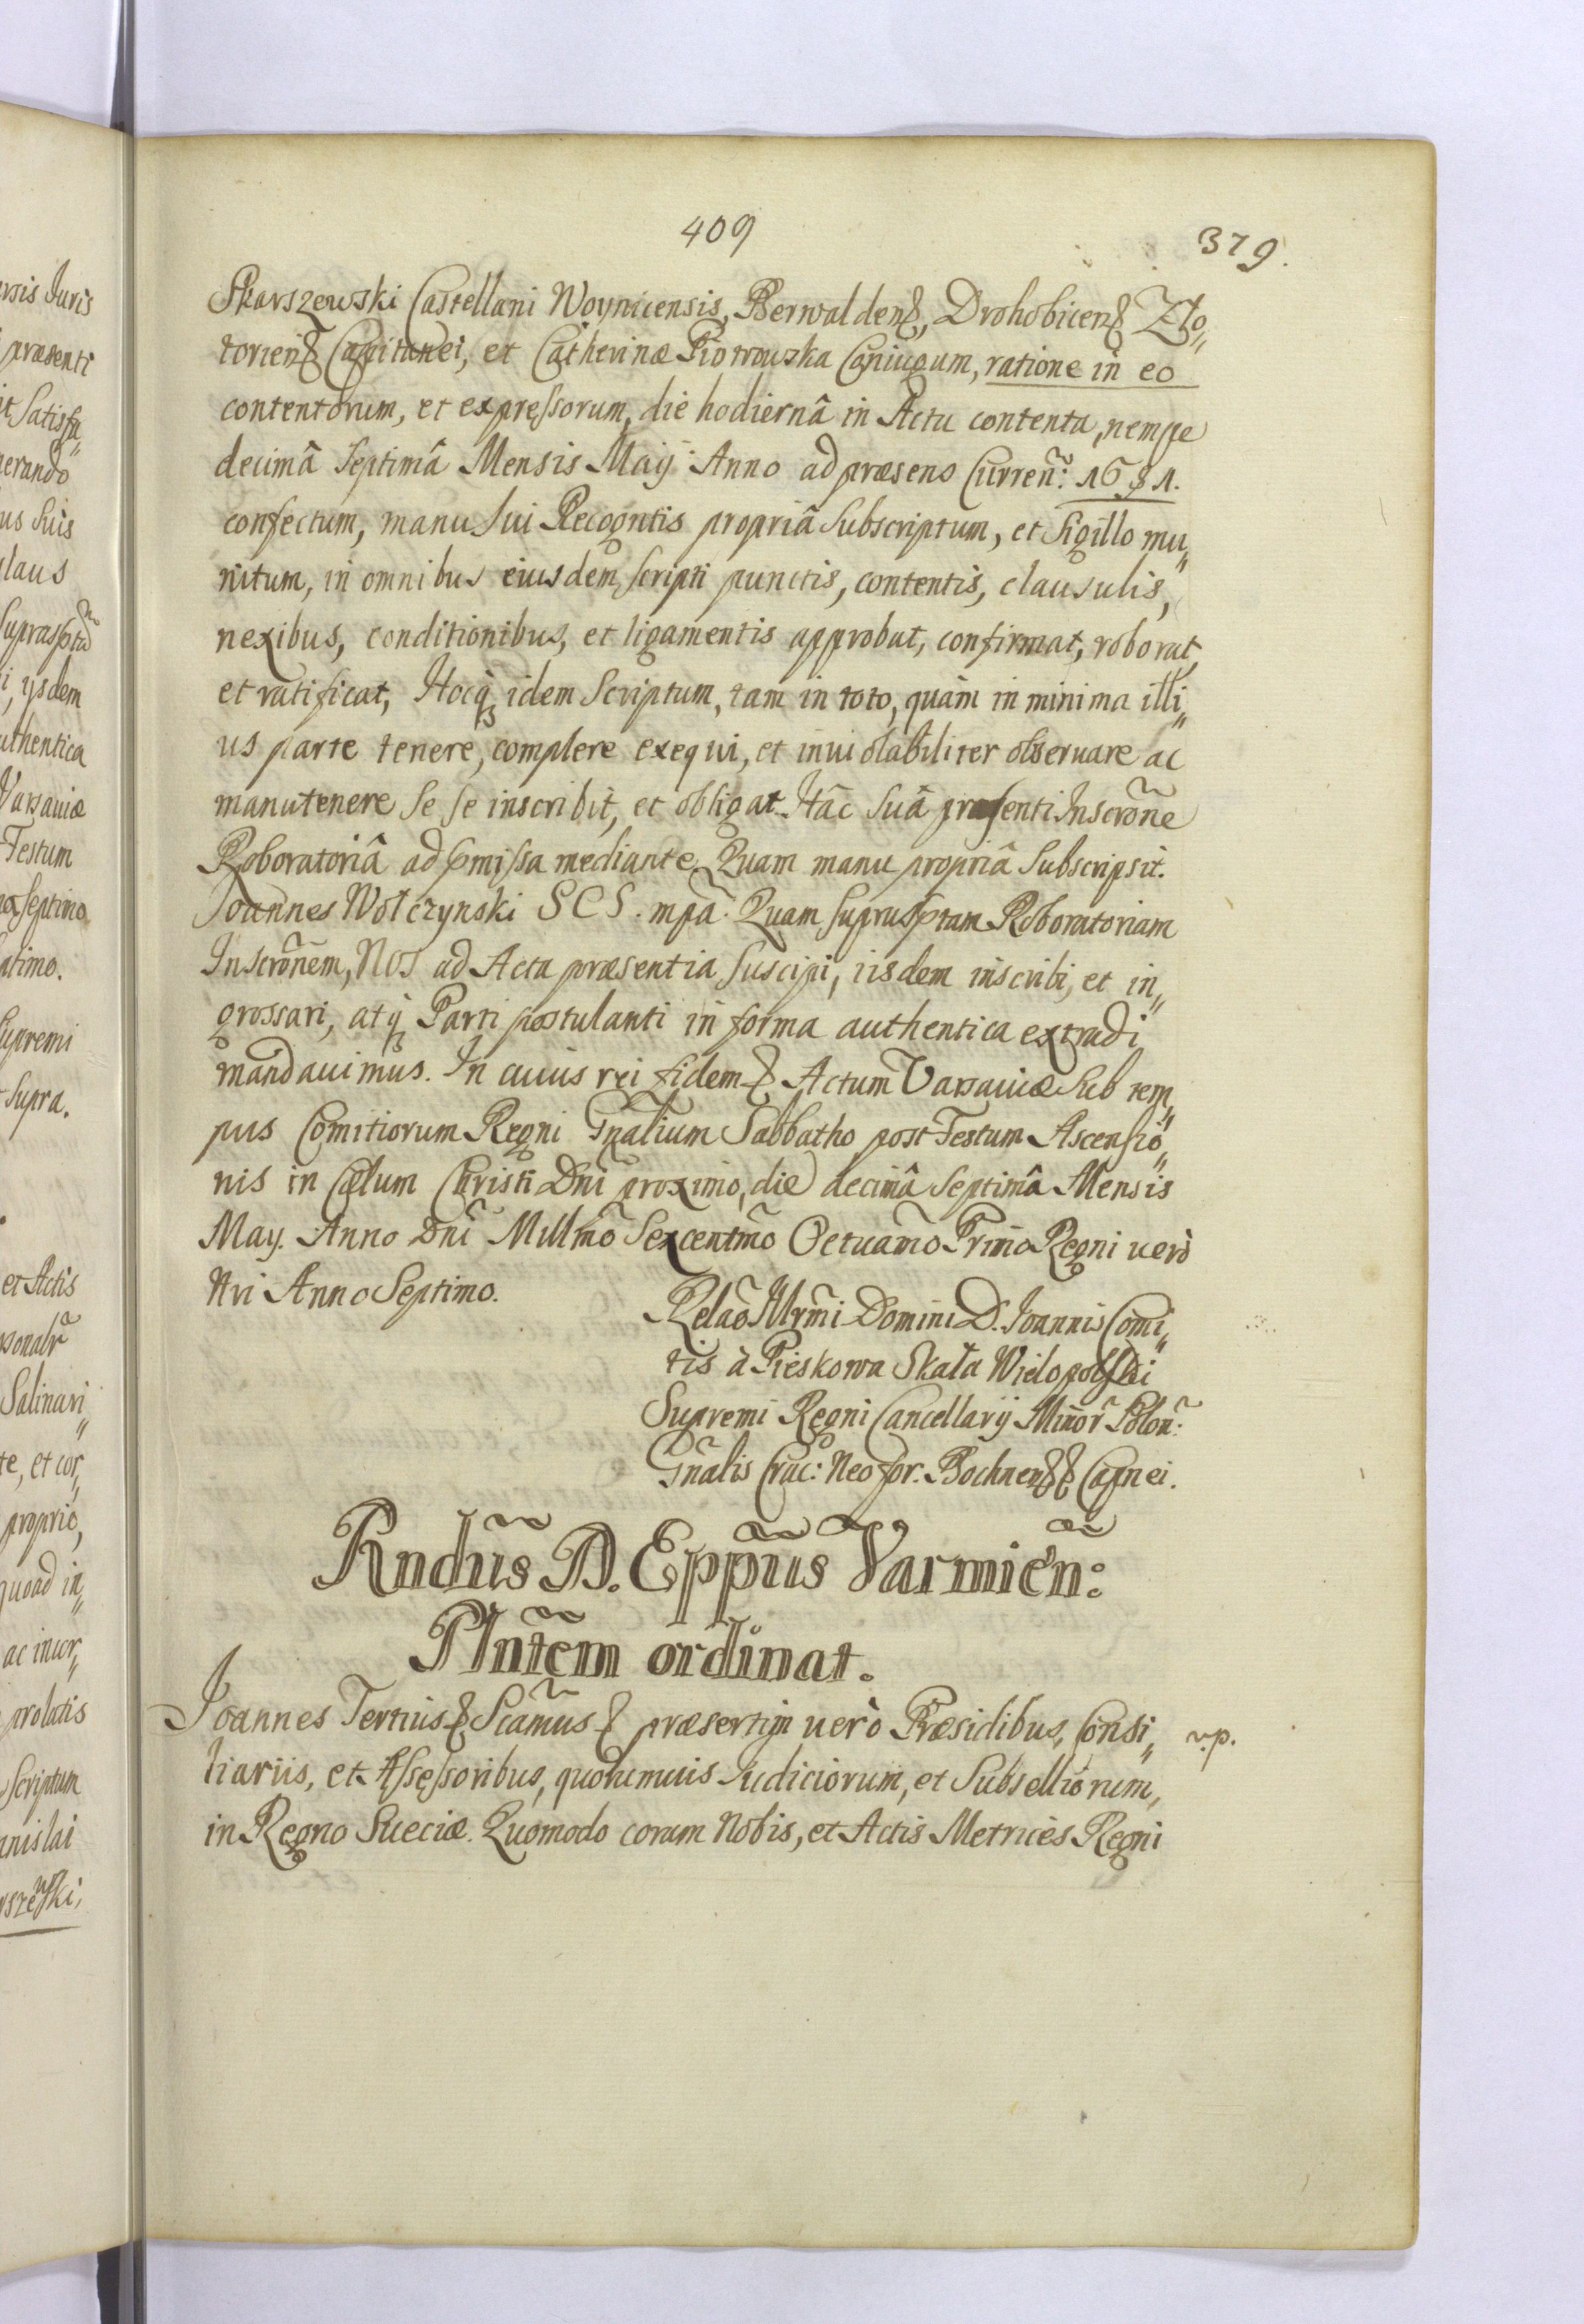 409
379.
Skarszewski Castellani Woynicensis, Berwaldens, Drohobicens Zło„
toriens Capitanei, et Catherinæ Piotrowska Coniugum, ratione in eo
contentorum, et expressorum, die hodiernâ in Actu contenta, nempe
decimâ septimâ Mensis Maÿ Anno ad præsens Curren̄: 1681.
confectum, manu sui Recogntis propriâ subscriptum, et Sigillo mu„
nitum, in omnibus eiusdem scripti punctis, contentis, clausulis,
nexibus, conditionibus, et ligamentis approbat, confirmat, roborat,
et ratificat, Hocq̨ idem Scriptum, tam in toto, quàm in minima illi„
us parte tenere, complere exequi, et inuiolabiliter obseruare ac
manutenere se se inscribit, et obligat. Hâc suâ præsenti Inscrõne
Roboratoriâ ad p̄missa mediante. Quam manu propriâ subscripsit.
Joannes Wolczynski SCS. mpã. Quam suprasp̄tam Roboratoriam
Inscrõnem, Nos ad Acta præsentia suscipi, iisdem inscribi, et in„
grossari, atq̨ Parti postulanti in forma authentica extradi
mandauimus. In cuius rei fidem & Actum Varsauiæ sub tem„
pus Comitiorum Regni Gn̄alium Sabbatho post Festum Ascensio„
nis in Cœlum Christi Dni proximo, die decimâ septimâ Mensis
May. Anno Dnĩ Millmõ Sexcentmõ Octuamõ Primo Regni uerò
Nri Anno Septimo.
Relaõ Illrm̃i Domini D. Joannis Comi„
tis à Pieskowa Skała Wielopolski
Supremi Regni Cancellarÿ Minor̃ Polon̄:
Gn̄alis Crac: Neofor: Bochnens & Capnei.
Rndũs D. Epp̃us Varmien̄:
Plnt̃em ordinat.
Joannes Tertius & Scãmus & præsertim uerò Præsidibus, Consi„
v.p.
liariis, et Assessoribus, quorumuis Iudiciorum, et Subselliorum,
in Regno Sueciæ. Quomodo coram Nobis, et Actis Metrices Regni